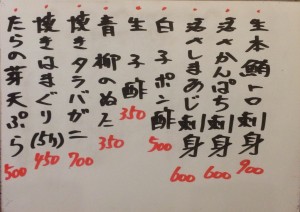 生本鮪トロ刺身 900
活さかんぱち刺身 600
活さしまあじ刺身 600
白子ポン酢 500
生子酢 350
青柳のぬた 350
焼きタラバガニ 700
焼きはまぐり(5ケ) 450
たらの芽天ぷら 500